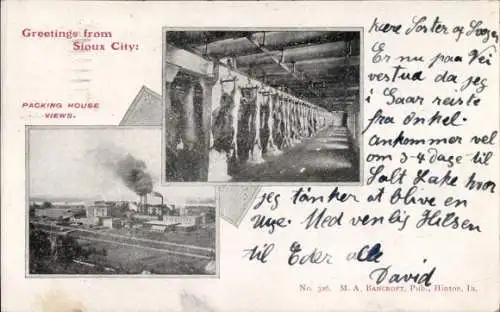 Greetings from
Sioux City:
PACKING HOUSE
VIEWS.
Kære Søster og Svoger
Er nu paa Vei
vestud da jeg
i Gaar reiste
fra Onkel.
Ankommer vel
om 3-4 Dage til
Salt Lake hvor
jeg tænker at blive en
Uge. Med venlig Hilsen
til Eder alle
David
No. 326. M. A. BANCROFT, Pub., Hinton, Ia.